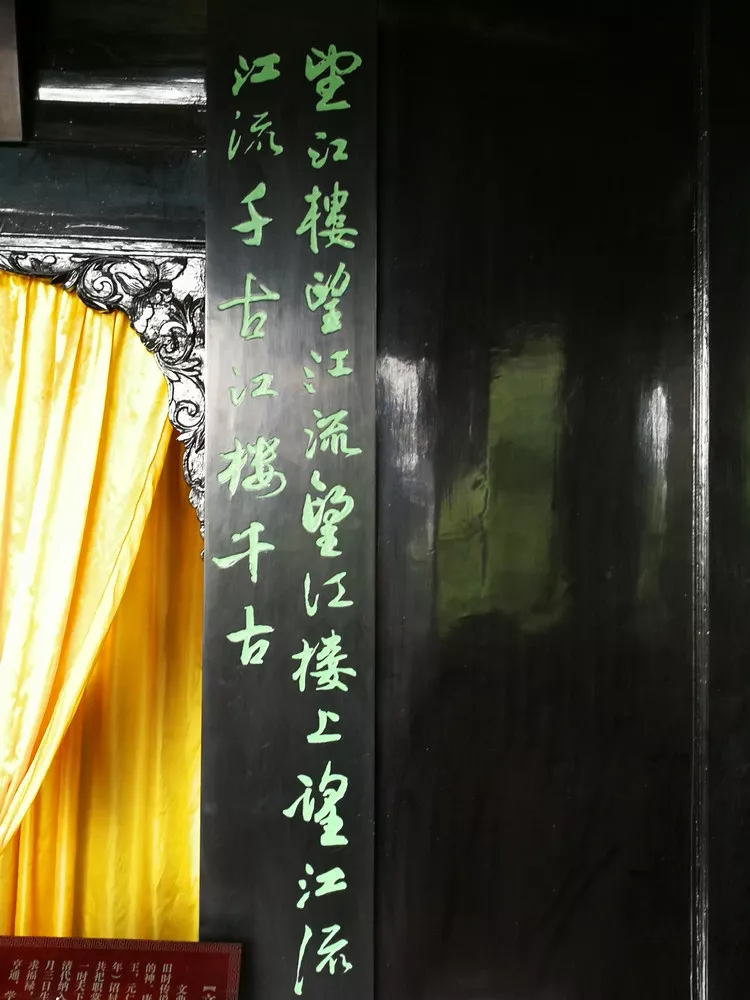 望江楼望江流望江楼上望江流
江流千古江楼千古